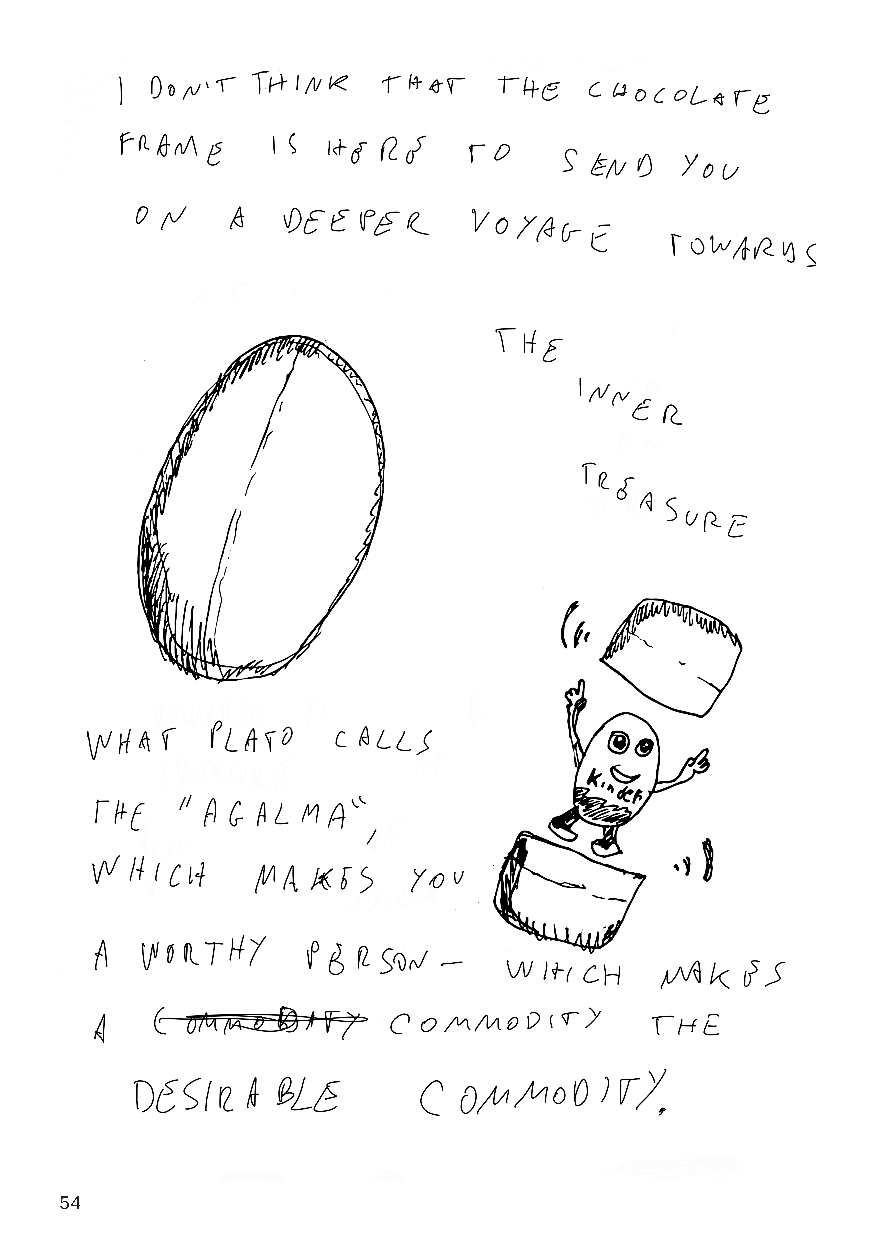 I DON'T THINK THAT THE CHOCOLATE
FRAME IS HERE TO SEND YOU
ON A DEEPER VOYAGE TOWARDS
THE
INNER
TREASURE
Kinder
WHAT PLATO CALLS
THE "AGALMA",
WHICH MAKES YOU
A WORTHY PERSON — WHICH MAKES
A COMMODITY COMMODITY THE
DESIRABLE COMMODITY.
54